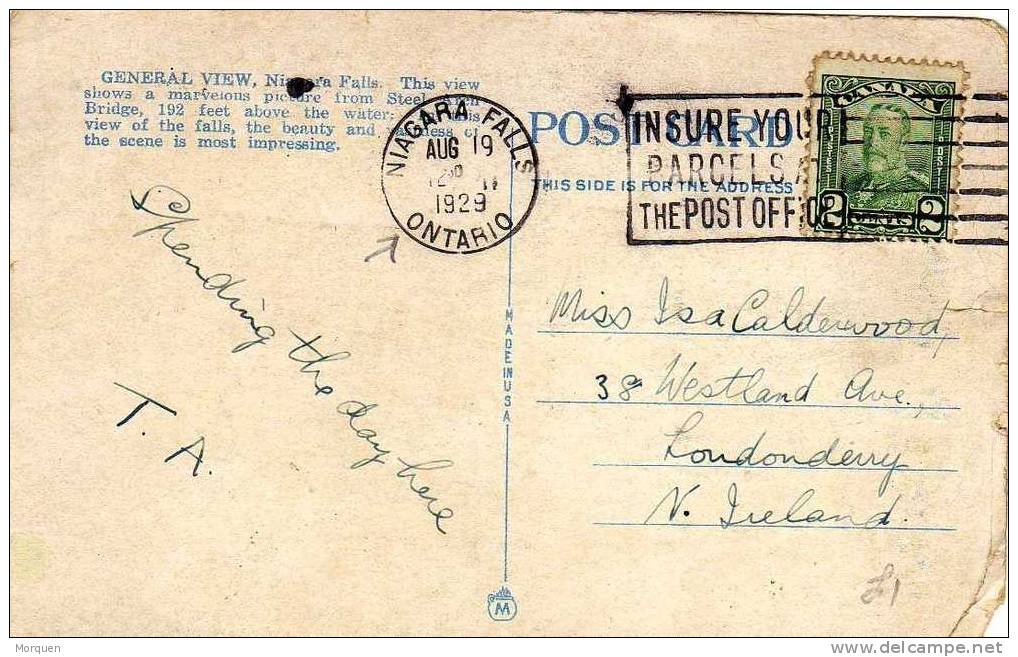 GENERAL VIEW, Niagara Falls. This view
shows a marvelous picture from Steel Arch
Bridge, 192 feet above the water;
view of the falls, the beauty and of
the scene is most impressing.
POST CARD
THIS SIDE IS FOR THE ADDRESS
NIAGARA FALLS
AUG 19
1929
ONTARIO
INSURE YOUR
PARCELS
THE POST OFFICE
CANADA
POSTES
POSTAGE
2 CENTS 2
Spending the day here
T. A.
MADE IN USA
M
Miss Isa Calderwood,
38 Westland Ave.,
Londonderry
N. Ireland.
£1
Morquen
delcampe.net